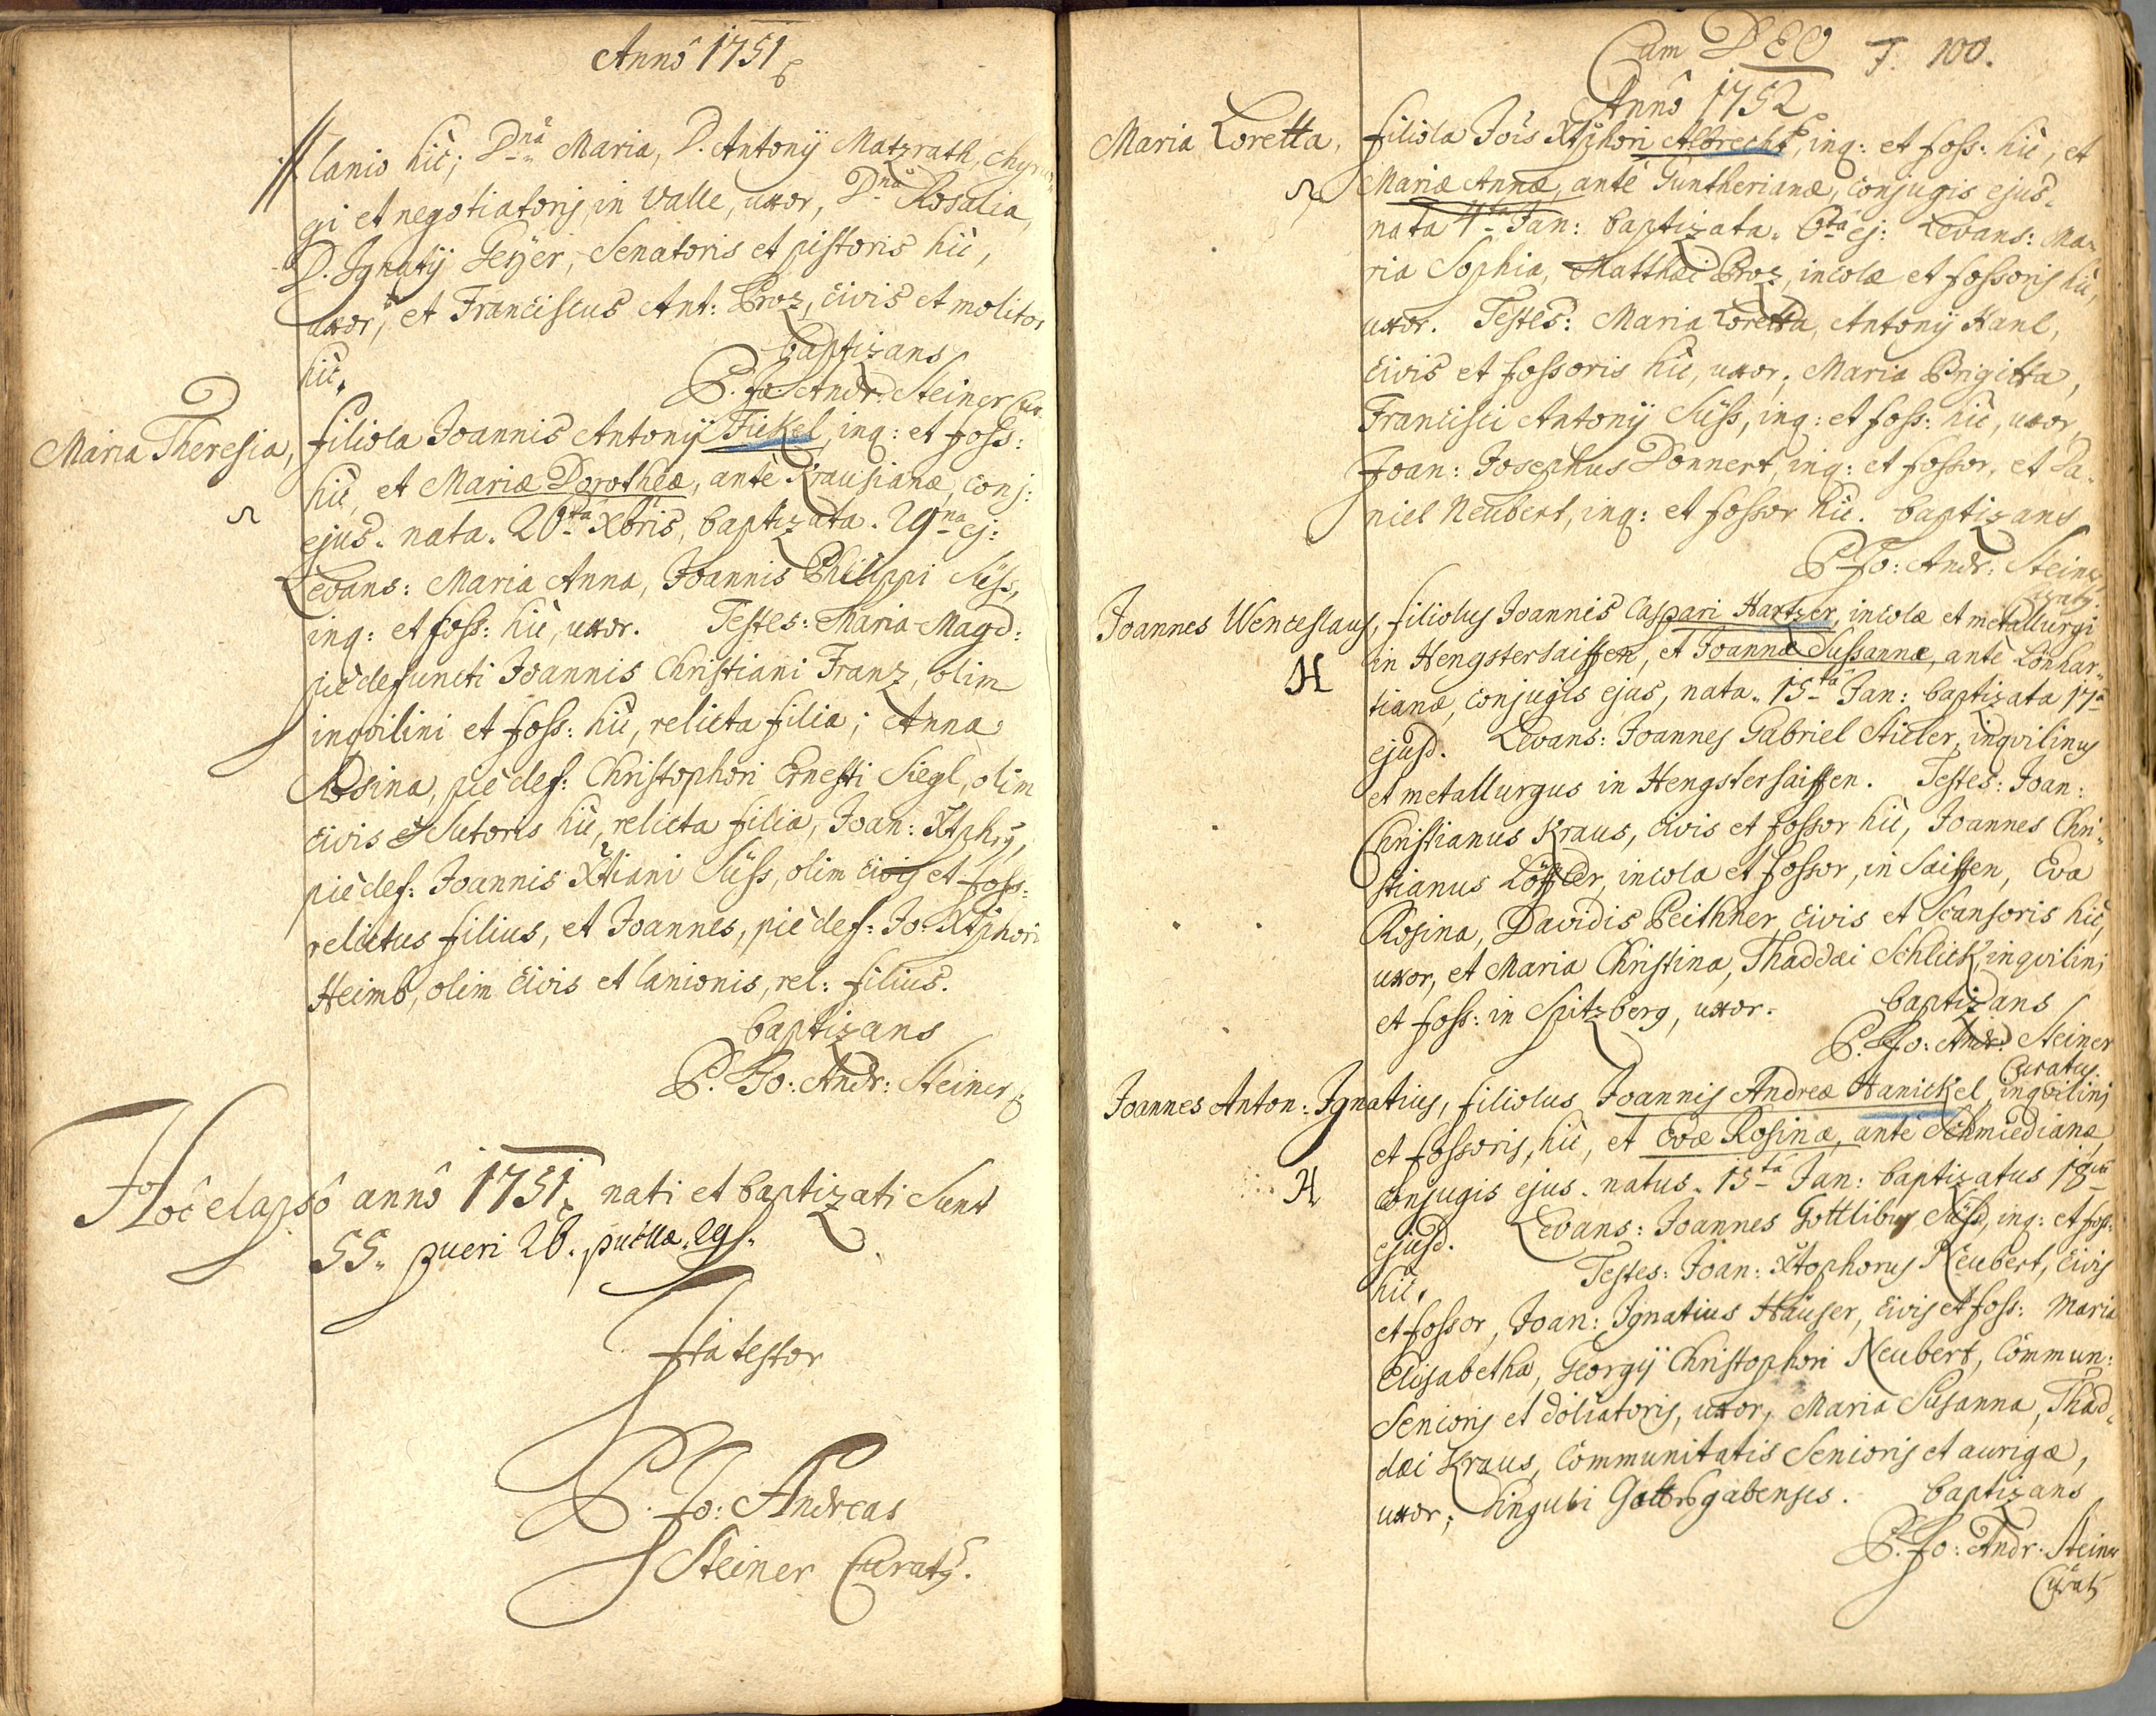 Annô 1751
lanio hic; Dna Maria, D. Antonij Matzrath, chyrur„
gi et negotiatoris, in Valle, uxor, Dna Rosalia,
D. Ignatij Geÿer, Senatoris et pistoris hic,
uxor, et Franciscus Ant: Proz, civis et molitor
hic. baptizans
P. Jo: Andr: Steiner Cur.
Maria Theresia, filiola Joannis Antonij Fickel, inq: et foss:
hic, et Mariæ Dorotheæ, antè Krausianæ, conj:
ejus. nata. 26ta Xbris, baptizata. 29na ej:
Levans: Maria Anna, Joannis Philippi Süss,
inq: et foss: hic, uxor. Testes: Maria Magd:
piè defuncti Joannis Christiani Franz, olim
inqvilini et foss: hic, relicta filia; Anna
Rosina, piè def: Christophori Ernesti Siegl, olim
civis et Sutoris hic, relicta filia, Joan: Xtphrg,
piè def: Joannis Xtiani Süss, olim civis et foss:
relictus filius, et Joannes, piè def: Jo: Xtphori
Heimb, olim civis et lanionis, rel: filius.
baptizans
P. Jo: Andr: Steiner
Hoc elapsô annô 1751 nati et baptizati sunt
55. pueri 26. puellæ. 29.
Ita testor
P. Jo: Andreas
Steiner Curatg.
Cum DEO F. 100.
Annô 1752
Maria Loretta, filiola Jois Xtphori Albrecht, inq: et foss: hic, et
Mariæ Annæ, antè Guntherianæ, conjugis ejus.
nata 4ta Jan: baptizata. 6ta ej: Levans: Ma„
ria Sophia, Matthæi Proz, incolæ et fossoris hic,
uxor. Testes: Maria Loretta, Antonij Hanl,
civis et fossoris hic, uxor, Maria Brigitta,
Francisci Antonij Süss, inq: et foss: hic, uxor,
Joan: Josephus Donnert, inq: et fossor, et Da„
niel Neubert, inq: et fossor hic. baptizans
P. Jo: Andr: Steiner
Curatg.
Joannes Wenceslaus, filiolus Joannis Caspari Hartzer, incolæ et metallurgi
in Hengstersaiffen, et Joannæ Sussannæ, antè Lönhar„
tianæ, conjugis ejus, nata. 15ta Jan: baptizata 17a
ejusd. Levans: Joannes Gabriel Stieler, inqvilinus
et metallurgus in Hengstersaiffen. Testes: Joan:
Christianus Kraus, civis et fossor hic, Joannes Chri„
stianus Löffler, incola et fossor, in Saiffen, Eva
Rosina, Davidis Peithner, civis et Scansoris hic,
uxor, et Maria Christina, Thaddæi Schlick, inqvilini
et foss: in Spitzberg, uxor. baptizans
P. Jo: Andr: Steiner
Curatus.
Joannes Anton: Ignatius, filiolus Joannis Andreæ Hanickel, inqvilini
et fossoris, hic, et Evæ Rosinæ, antè Schmiedianæ,
conjugis ejus. natus. 15ta Jan: baptizatus 18va
ejusd. Levans: Joannes Gottlibus Süss, inq: et foss:
hic. Testes: Joan: Xtophorus Neubert, civis
et fossor, Joan: Ignatius Häuser, civis et foss: Maria
Elisabetha, Georgij Christophori Neubert, Commun:
Senioris et doliatoris, uxor, Maria Susanna, Thad„
dæi Kraus, Communitatis Senioris et aurigæ,
uxor; singuli Gottsgabenses. baptizans
P. Jo: Andr: Steiner
Curatg